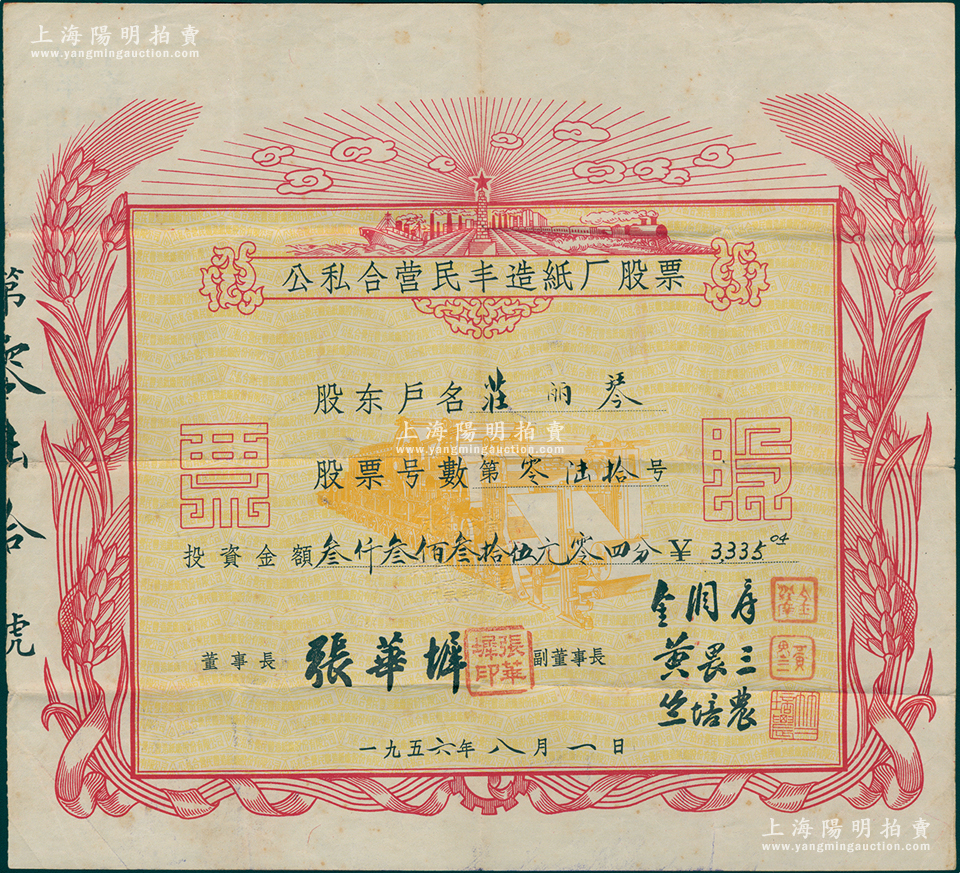 上海陽明拍賣
www.yangmingauction.com
公私合营民丰造紙厂股票
股东戶名 莊丽琴
上海陽明拍賣
www.yangmingauction.com
股票号數 第零陆拾号
票
股
投資金額 叁仟叁佰叁拾伍元零四分 3,335 04
董事長 張華墀
張華墀印
副董事長
金潤庠
黄畏三
竺培農
一九五六年八月一日
第零陆拾號
上海陽明拍賣
www.yangmingauction.com